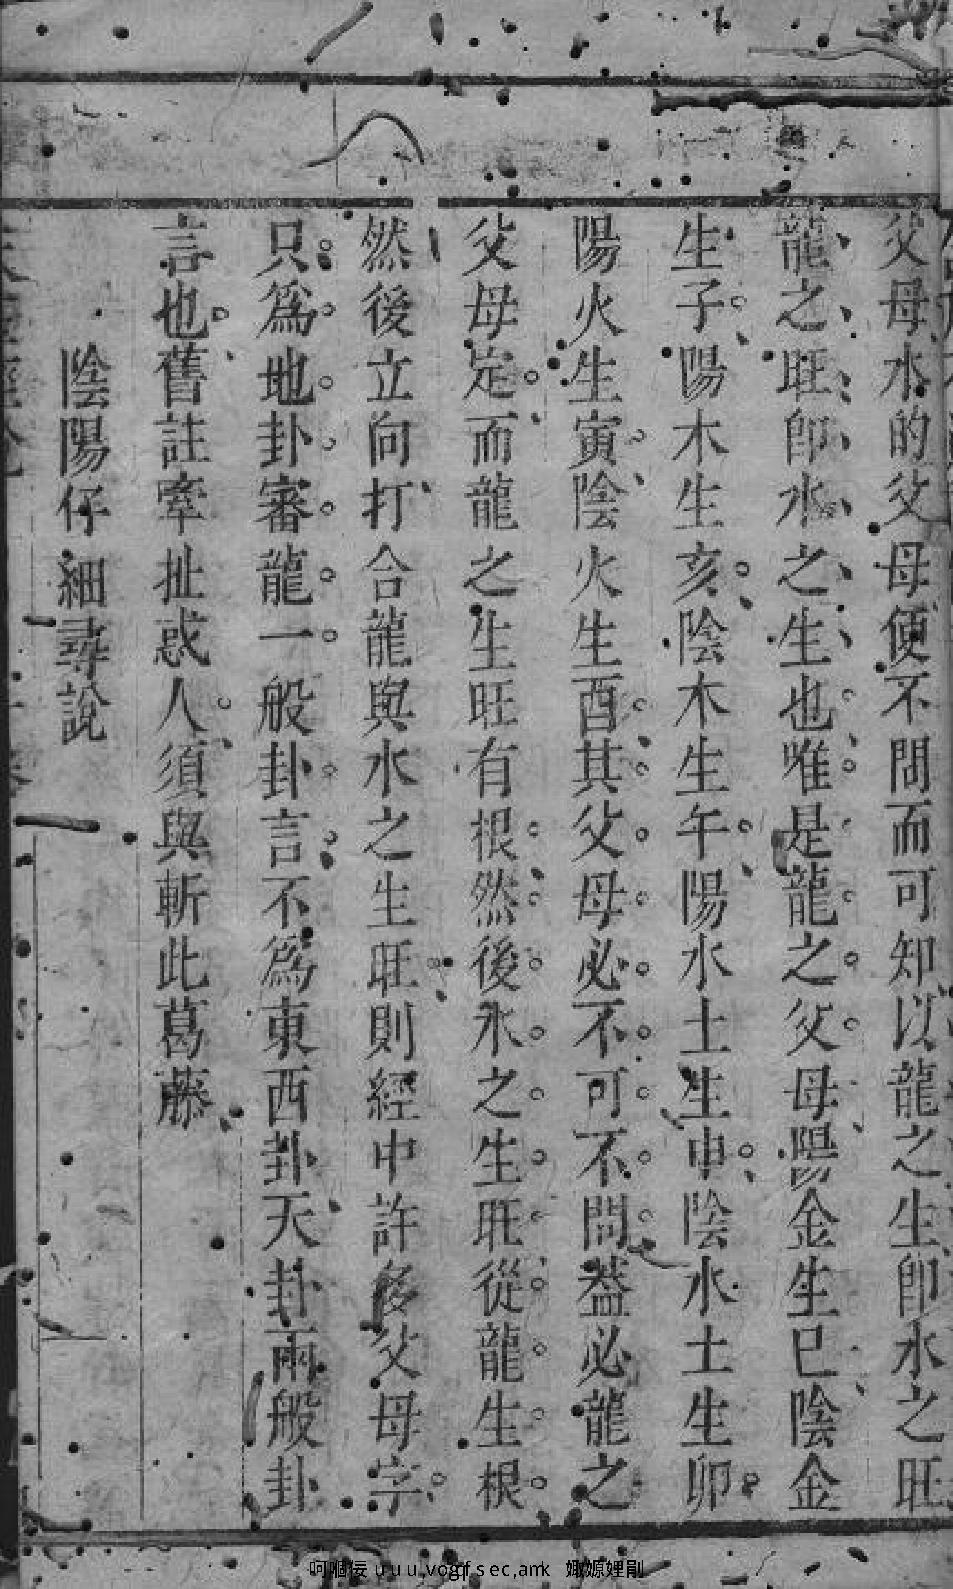 父母水的父母便不問而可知以龍之生卽水之旺
龍之旺卽水之生也唯是龍之父母陽金生巳陰金
生子陽木生亥陰木生午陽水土生申陰水土生卯
陽火生寅陰火生酉其父母必不可不問葢必龍之
父母定而龍之生旺有根然後水之生旺從龍生根
然後立向打合龍與水之生旺則經中許多父母字
只爲地卦審龍一般卦言不爲東西卦天卦兩般卦
言也舊註牽扯惑人須與斬此葛藤
陰陽仔細尋說